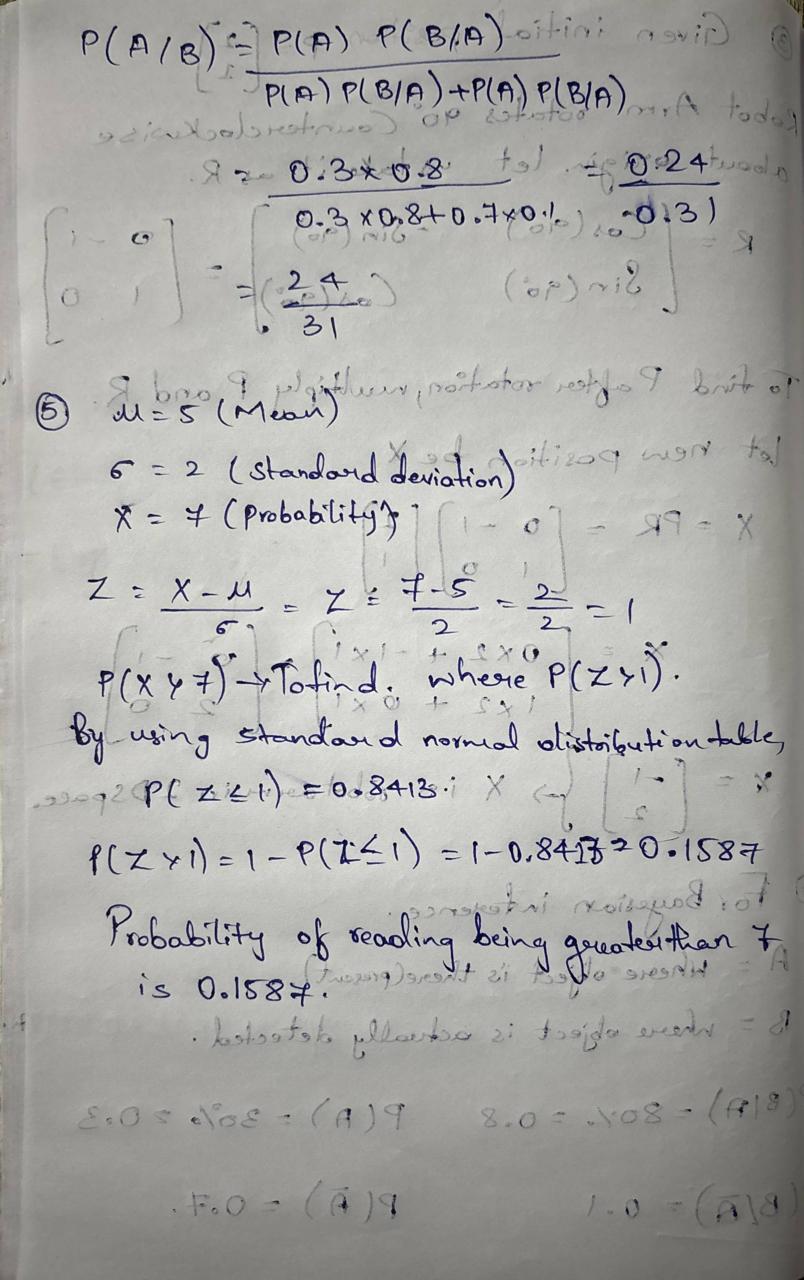 P(A/B) = P(A) P(B/A)
P(A) P(B/A) + P(A) P(B/A)
= 0.3 x 0.8 = 0.24
0.3 x 0.8 + 0.7 x 0.1 0.31
= 24
31
⑤ μ = 5 (Mean)
σ = 2 (standard deviation)
X = 7 (Probability)
Z = X - μ = Z = 7-5 = 2 = 1
σ 2 2
P(X > 7) → To find. where P(Z > 1).
By using standard normal distribution table,
P(Z ≤ 1) = 0.8413.
P(Z > 1) = 1 - P(Z ≤ 1) = 1 - 0.8413 = 0.1587
Probability of reading being greater than 7
is 0.1587.